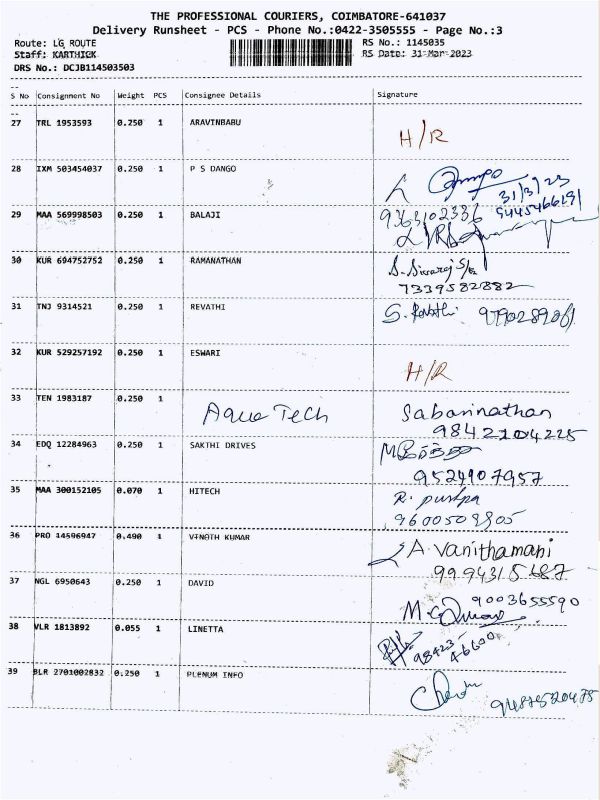 THE PROFESSIONAL COURIERS, COIMBATORE-641037
Delivery Runsheet - PCS - Phone No.:0422-3505555 - Page No.:3
Route: LG ROUTE RS No.: 1145035
Staff: KARTHICK RS Date: 31-Mar-2023
DRS No.: DCJB114503503
S No Consignment No Weight PCS Consignee Details Signature
27 TRL 1953593 0.250 1 ARAVINBABU H/R
28 IXM 503454037 0.250 1 P S DANGO
31/3/23
29 MAA 569998503 0.250 1 BALAJI 9363102336
30 KUR 694752752 0.250 1 RAMANATHAN
7339582882
31 TNJ 9314521 0.250 1 REVATHI S. Revathi
32 KUR 529257192 0.250 1 ESWARI H/R
33 TEN 1983187 0.250 1 Aqua Tech Sabarinathan
9842204225
34 EDQ 12284963 0.250 1 SAKTHI DRIVES
9524907957
35 MAA 300152105 0.070 1 HITECH R. pushpa
36 PRO 14596947 0.490 1 VINOTH KUMAR A. Vanithamani
37 NGL 6950643 0.250 1 DAVID 9003655590
38 VLR 1813892 0.055 1 LINETTA
98423-46600
39 BLR 2701002832 0.250 1 PLENUM INFO